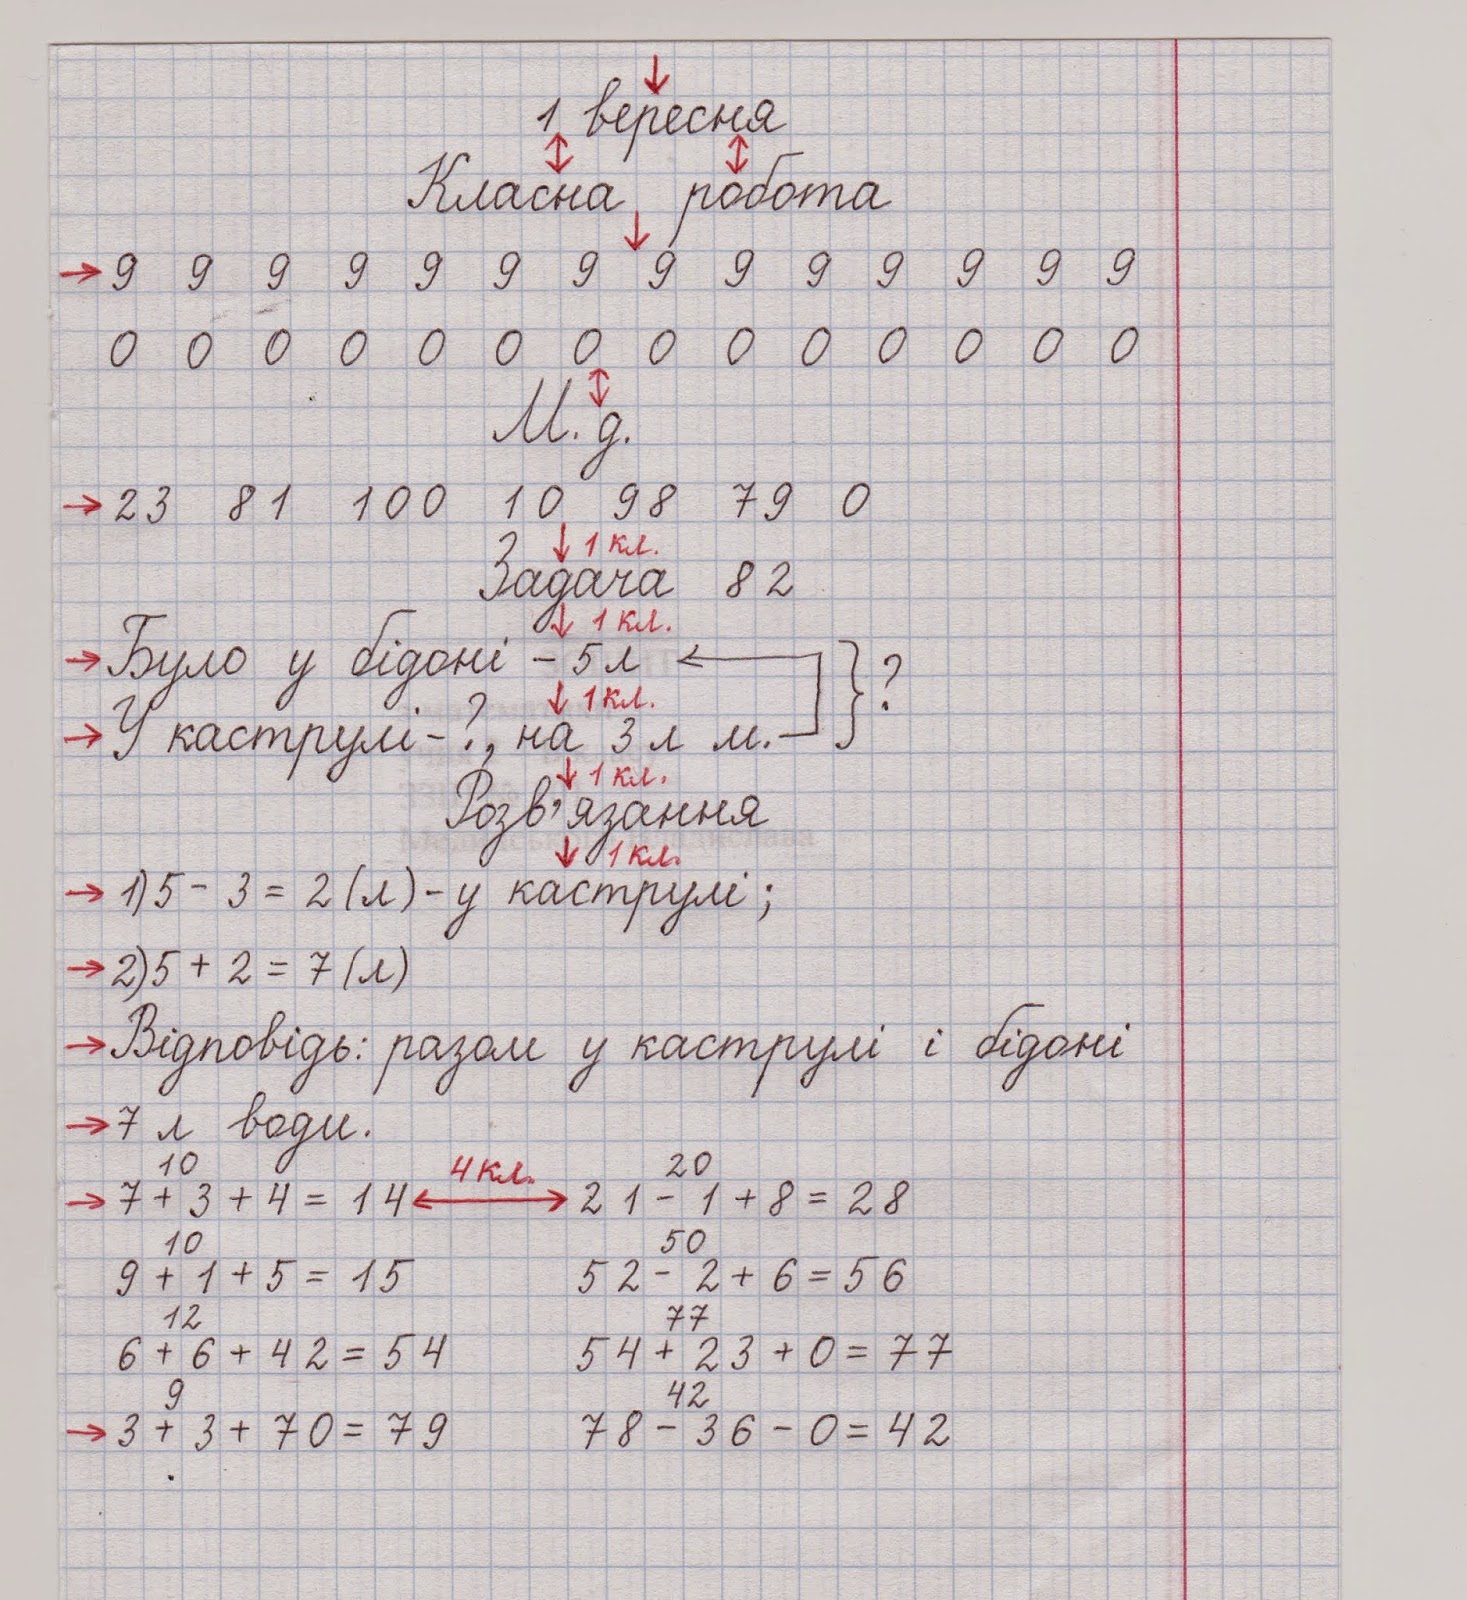 1 вересня
Класна робота
9 9 9 9 9 9 9 9 9 9 9 9 9 9
0 0 0 0 0 0 0 0 0 0 0 0 0 0
М. д.
23 81 100 10 98 79 0
1 кл.
Задача 82
1 кл.
Було у бідоні – 5 л } ?
1 кл.
У каструлі - ?, на 3 л м.
1 кл.
Розв'язання
1 кл.
1) 5 - 3 = 2 (л) - у каструлі;
2) 5 + 2 = 7 (л)
Відповідь: разом у каструлі і бідоні
7 л води.
10 4 кл. 20
7 + 3 + 4 = 14 21 - 1 + 8 = 28
10 50
9 + 1 + 5 = 15 52 - 2 + 6 = 56
12 77
6 + 6 + 42 = 54 54 + 23 + 0 = 77
9 42
3 + 3 + 70 = 79 78 - 36 - 0 = 42